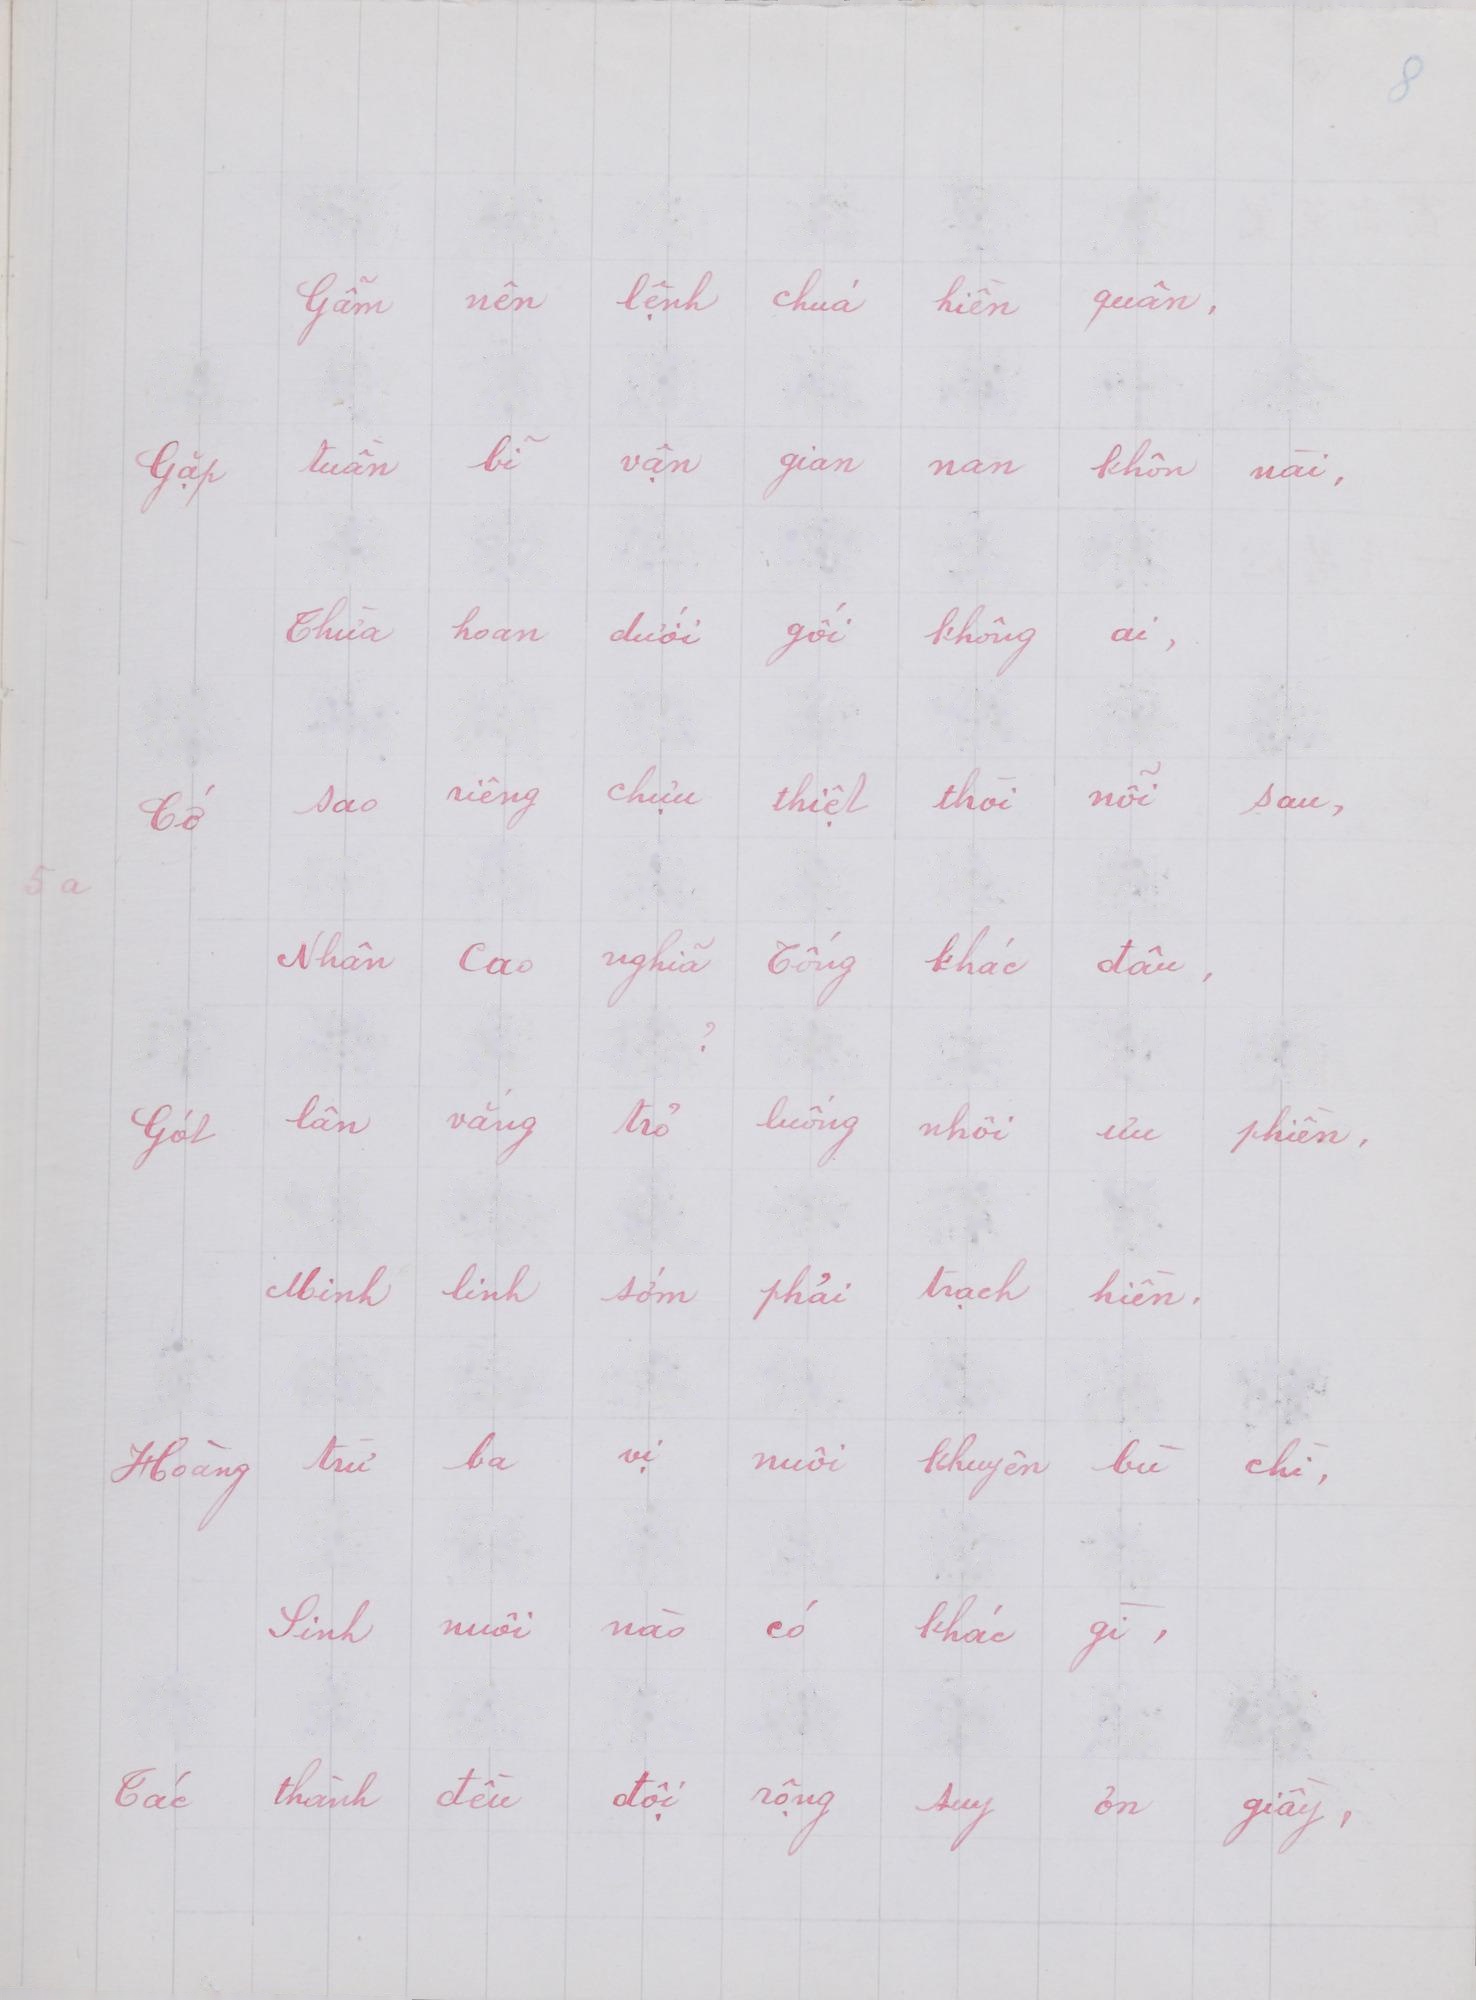 8
Gẫm nên lệnh chuá hiền quân,
Gặp tuần bĩ vận gian nan khôn nài,
Thừa hoan dưới gối không ai,
Cớ sao riêng chựu thiệt thòi nỗi sau,
5a
Nhân Cao nghiã Tống khác đâu,
?
Gót lân vắng trở luống nhôi ưu phiền,
Minh linh sớm phải trạch hiền,
Hoàng trừ ba vị nuôi khuyên bù chì,
Sinh nuôi nào có khác gì,
Tác thành đều đội rộng suy ơn giầy,